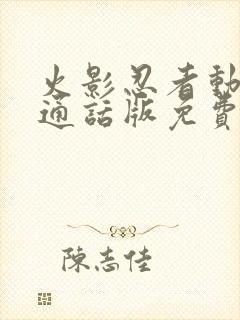 火影忍者動
通話版免費
陳志佳